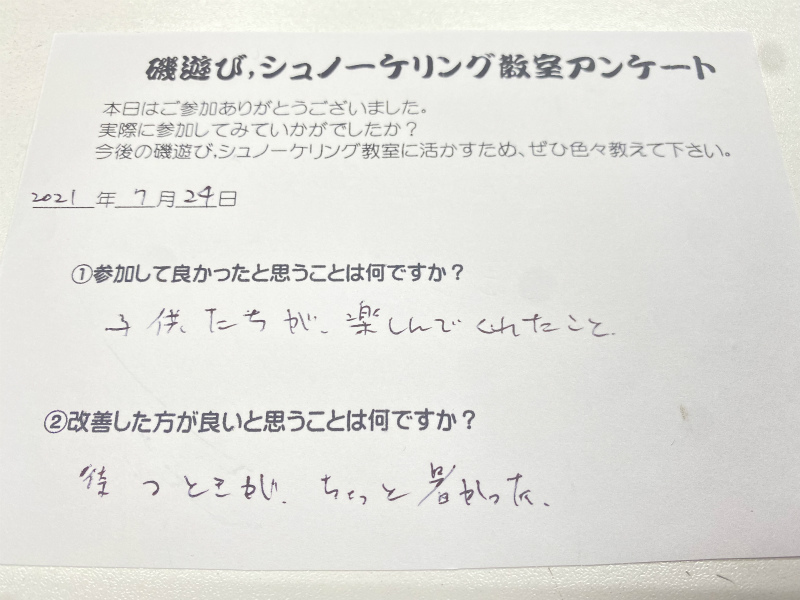 磯遊び,シュノーケリング教室アンケート
本日はご参加ありがとうございました。
実際に参加してみていかがでしたか？
今後の磯遊び,シュノーケリング教室に活かすため、ぜひ色々教えて下さい。
2021年7月24日
①参加して良かったと思うことは何ですか？
子供たちが、楽しんでくれたこと.
②改善した方が良いと思うことは何ですか？
待つときが、ちょっと暑かった、